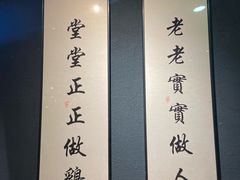 老老實實做人
堂堂正正做鷄